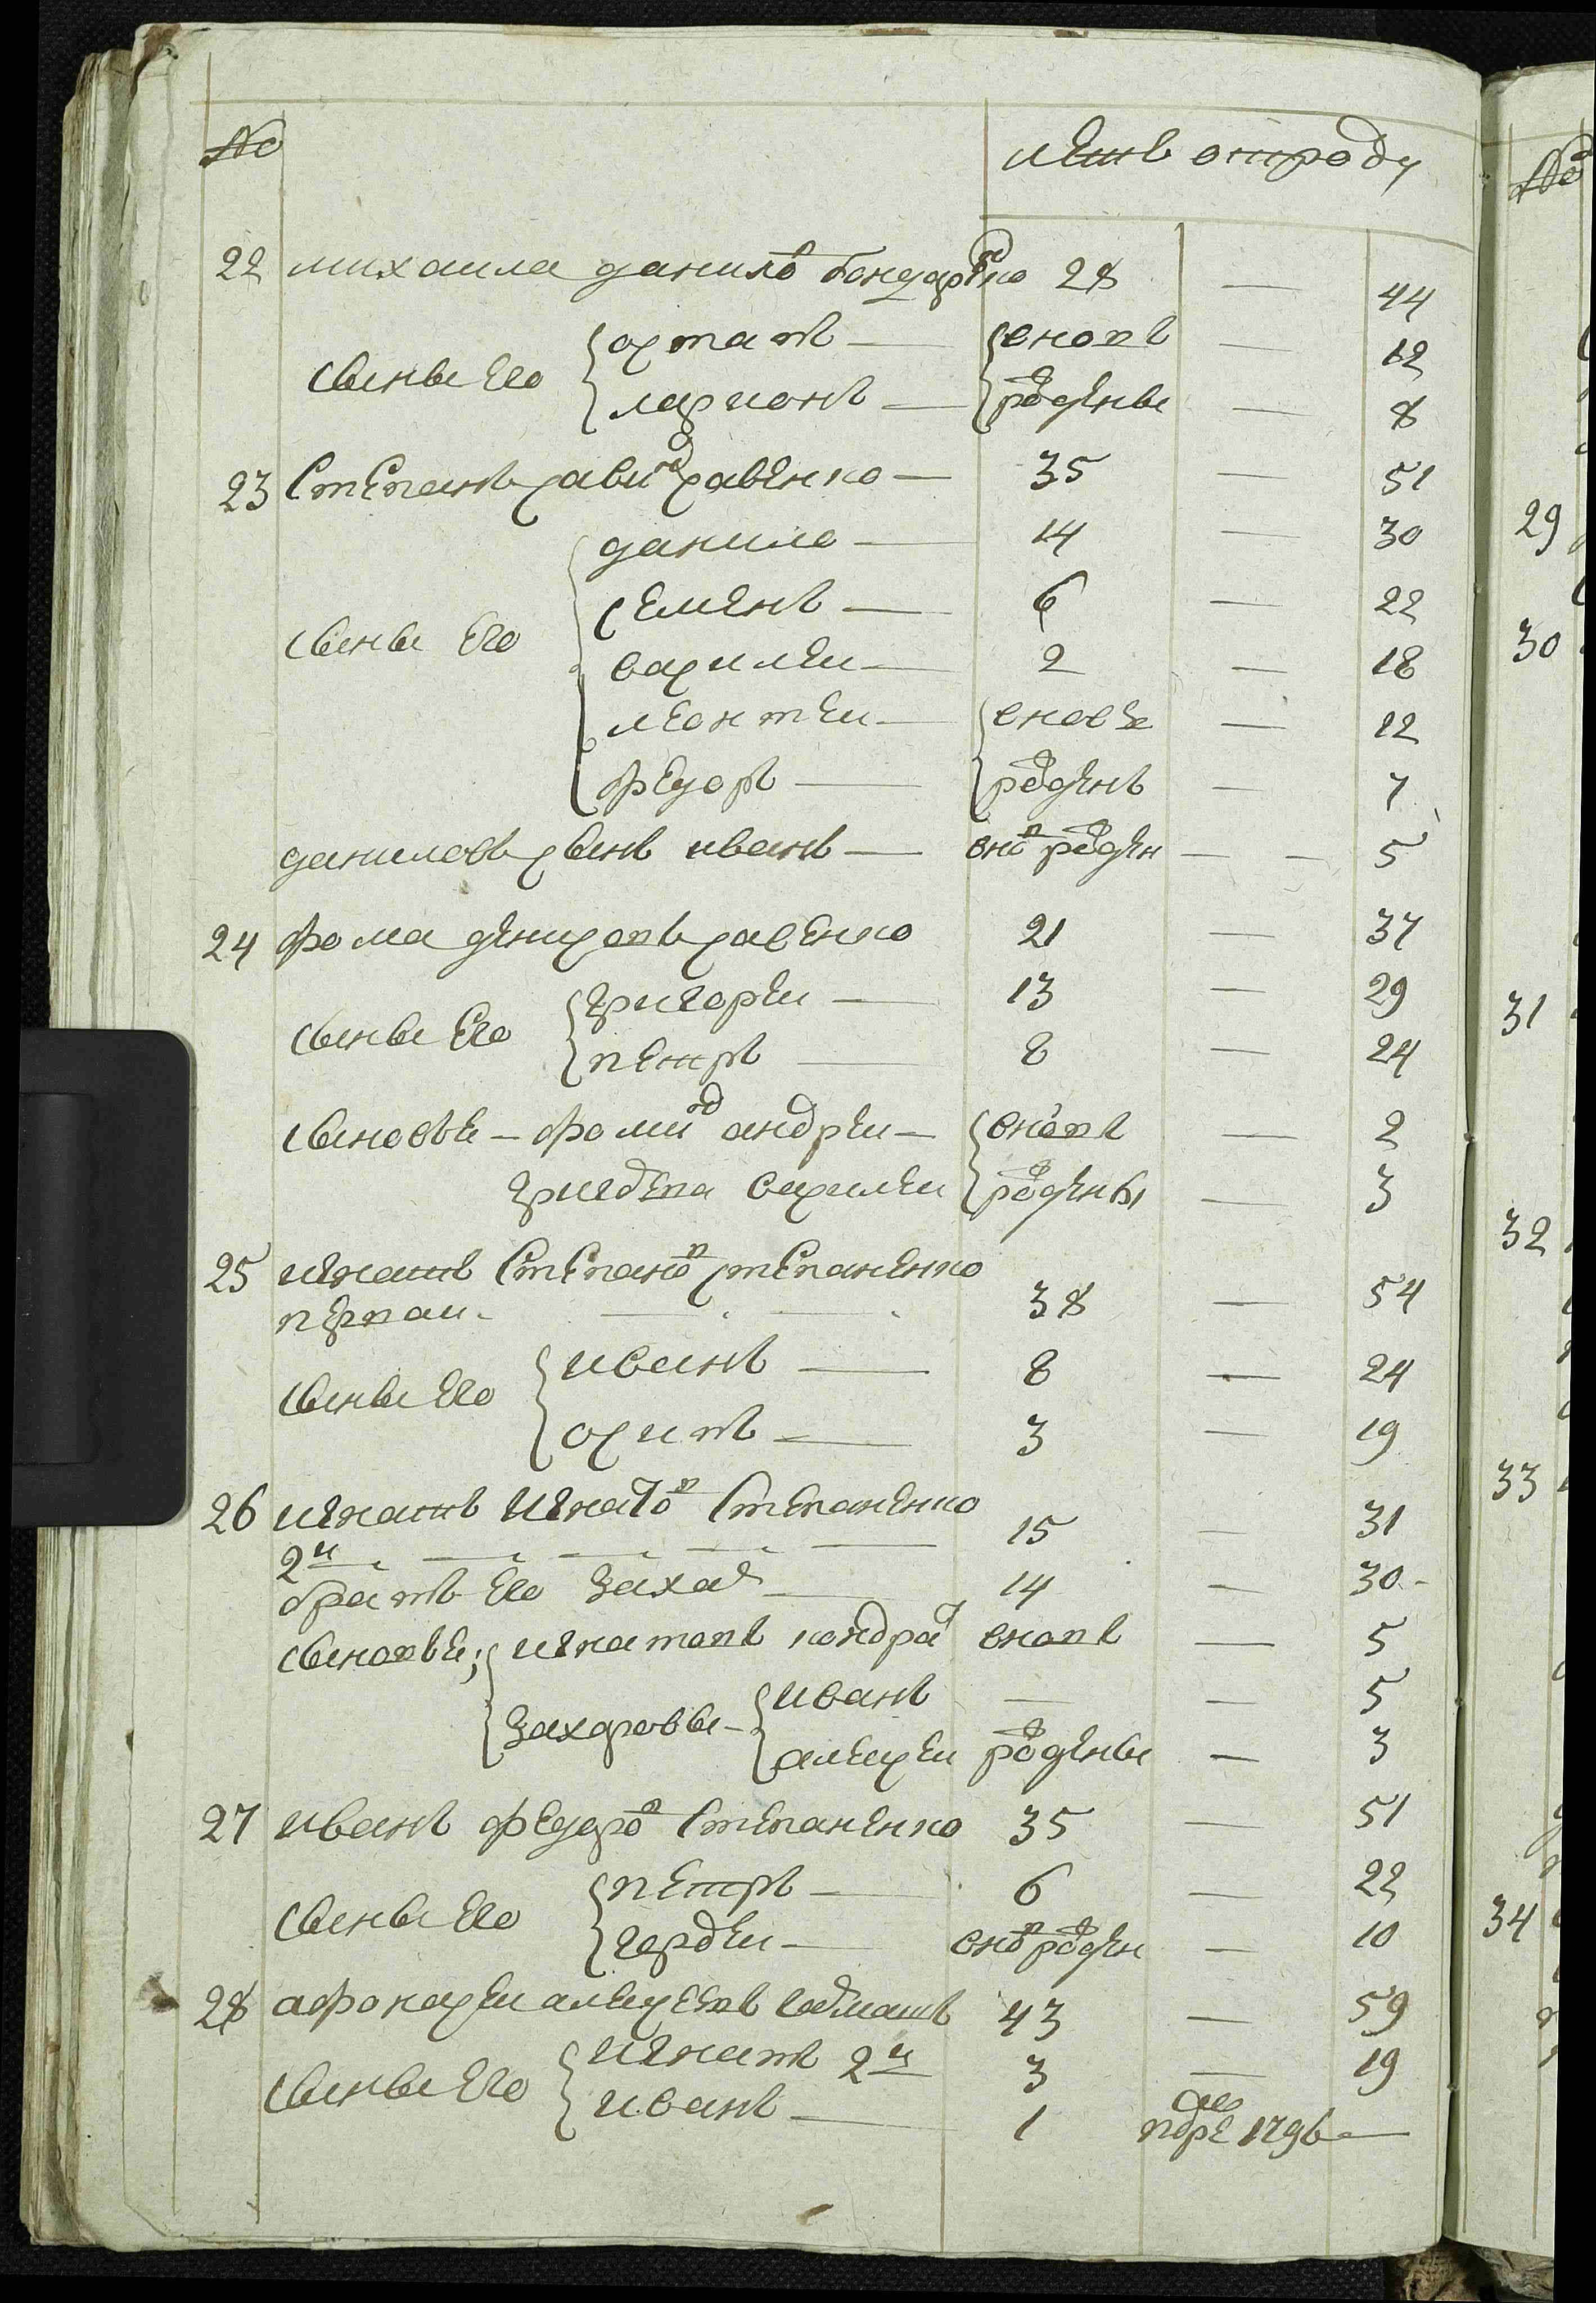 № летъ отроду
22 михаила данилов бондаренко 28 — 44
сыны его { остапъ — { вновь — 12
{ ларионъ — { рожденъы — 8
23 Степанъ савенко — 35 — 51
данило — 14 — 30
семенъ — 6 — 22
сыны его василеи — 2 — 18
леонтеи — { вновь — 12
федоръ — { рожденъ — 7
даниловъ сынъ иванъ — внов рожден — — 5
24 фома денисовъ савенко 21 — 37
сыны его { григореи — 13 — 29
{ петръ — 8 — 24
сыновье — фомин андреи — { вновь — 2
василеи { рожденъы — 3
25 игнатъ Степанов степаненко
первои — — 38 — 54
сыны его { иванъ — 8 — 24
{ осипъ — 3 — 19
26 игнатъ Игнатов Степаненко 15 — 31
2й — — — —
братъ его Захар — 14 — 30
сыновье; { игнатовъ кондрат вновь — 5
{ Захаровы — { иванъ — — 5
{ алексеи рожденъы — 3
27 иванъ федоров Степаненко 35 — 51
сыны его { петръ — 6 — 22
{ гордеи — внов рожден — 10
28 афонасеи алексеевъ 43 — 59
сыны его { игнатъ 2й 3 — 19
{ иванъ — 1 1796 —
№
29
30
31
32
33
34